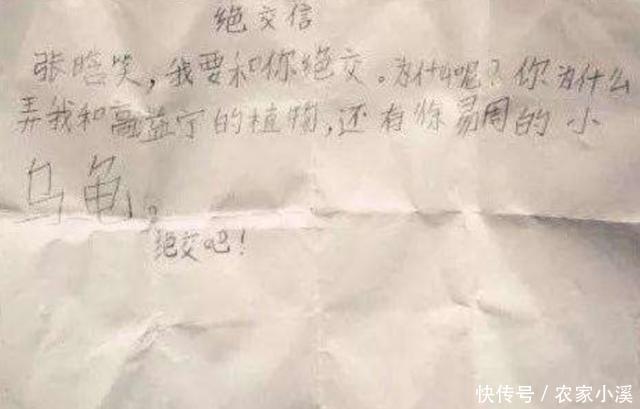 绝交信
张晗笑，我要和你绝交。为什么呢？你为什么
弄我和高益宁的植物，还有你易周的小
乌龟。
绝交吧！
快传号／农家小溪